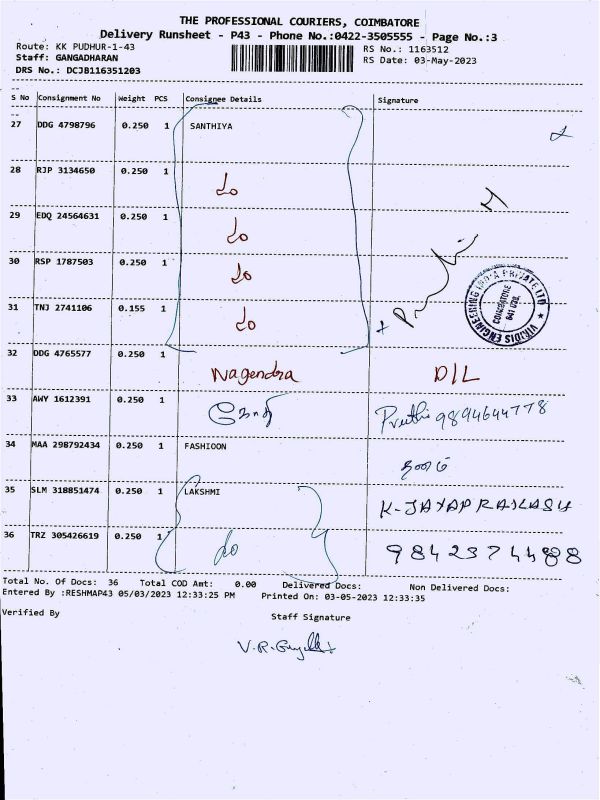 THE PROFESSIONAL COURIERS, COIMBATORE
Delivery Runsheet - P43 - Phone No.:0422-3505555 - Page No.:3
Route: KK PUDHUR-1-43 RS No.: 1163512
Staff: GANGADHARAN RS Date: 03-May-2023
DRS No.: DCJB116351203
S No Consignment No Weight PCS Consignee Details Signature
27 DDG 4798796 0.250 1 SANTHIYA
28 RJP 3134650 0.250 1 do
29 EDQ 24564631 0.250 1 do
30 RSP 1787503 0.250 1 do
31 TNJ 2741106 0.155 1 do
VIRIDIS ENGINEERING INDIA PRIVATE LTD
COIMBATORE
32 DDG 4765577 0.250 1 Nagendra D/L
33 AWY 1612391 0.250 1 Preethi 9894644778
34 MAA 298792434 0.250 1 FASHIOON
35 SLM 318851474 0.250 1 LAKSHMI K-JAYAPRAKASH
36 TRZ 305426619 0.250 1 do
Total No. Of Docs: 36 Total COD Amt: 0.00 Delivered Docs: Non Delivered Docs:
Entered By :RESHMAP43 05/03/2023 12:33:25 PM Printed On: 03-05-2023 12:33:35
Verified By Staff Signature